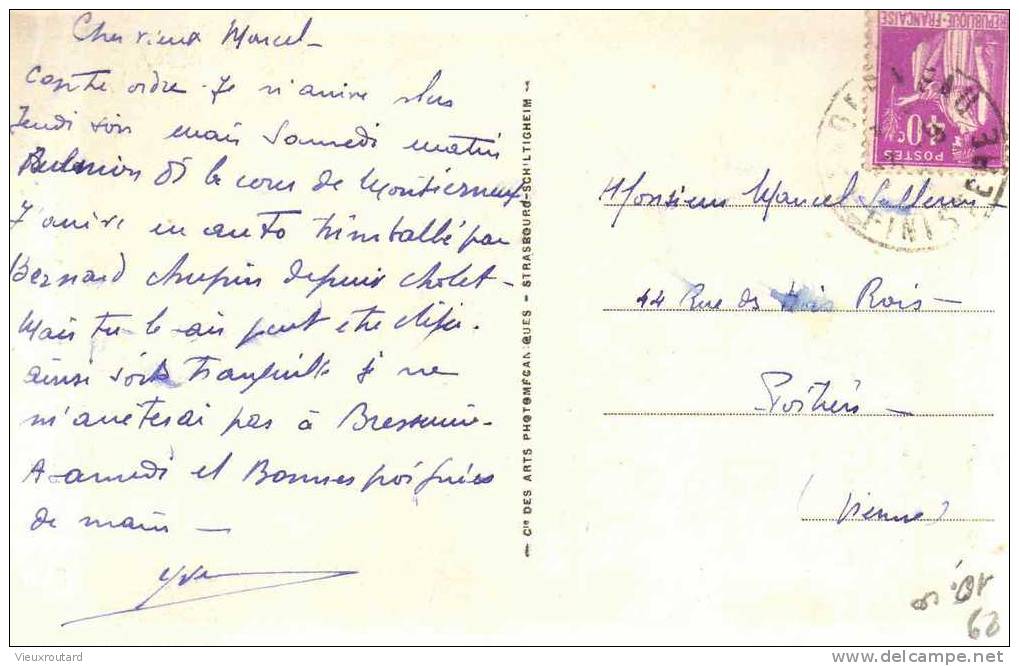 Cher vieux Marcel -
Contre ordre. Je n'arrive plus
Jeudi soir mais Samedi matin
Réunion 8h la cour de Montierneuf
J'arrive en auto trimballé par
Bernard Chupin depuis Cholet -
Mais tu le sais peut etre déjà.
ainsi sois tranquille je ne
m'arrêterai pas à Bressuire -
A samedi et Bonnes poignées
de main -
Yve
— Cie DES ARTS PHOTOMECANIQUES - STRASBOURG-SCHILTIGHEIM —
REPUBLIQUE-FRANÇAISE
40c
POSTES
FINIS
Monsieur Marcel
44 Rue des trois Rois -
Poitiers -
(Vienne)
10.-
62
Vieuxroutard
Delcampe.net